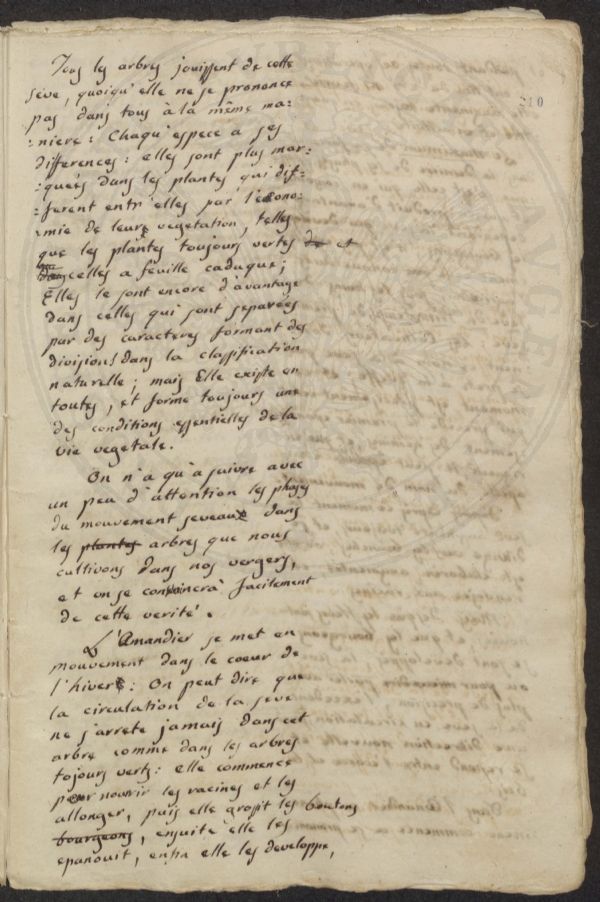 210
Tous les arbres jouissent de cette
seve, quoiqu'elle ne se prononce
pas dans tous à la même ma:
:niere: Chaqu'espece a ses
differences: elles sont plus mar-
:quées dans les plantes qui dif-
:ferent entr'elles par l'écono-
:mie de leur vegetation, telles
que les plantes toujours vertes de et
celles a feuille caduque;
Elles le sont encore d'avantage
dans celles qui sont separées
par des caracteres formant des
divisions dans la classification
naturelle; mais Elle existe en
toutes, et forme toujours une
des conditions essentielles de la
vie vegetale.
On n'a qu'à suivre avec
un peu d'attention les phases
du mouvement seveaux dans
les plantes arbres que nous
cultivons dans nos vergers,
et on se convaincrà facilement
de cette verité.
L'Amandier se met en
mouvement dans le coeur de
l'hiver: On peut dire que
la circulation de la seve
ne s'arrete jamais dans cet
arbre comme dans les arbres
tojours verts: elle commence
par nourrir les racines et les
allonger, puis elle grossit les boutons
bourgeons, ensuite elle les
epanouit, enfin elle les developpe,